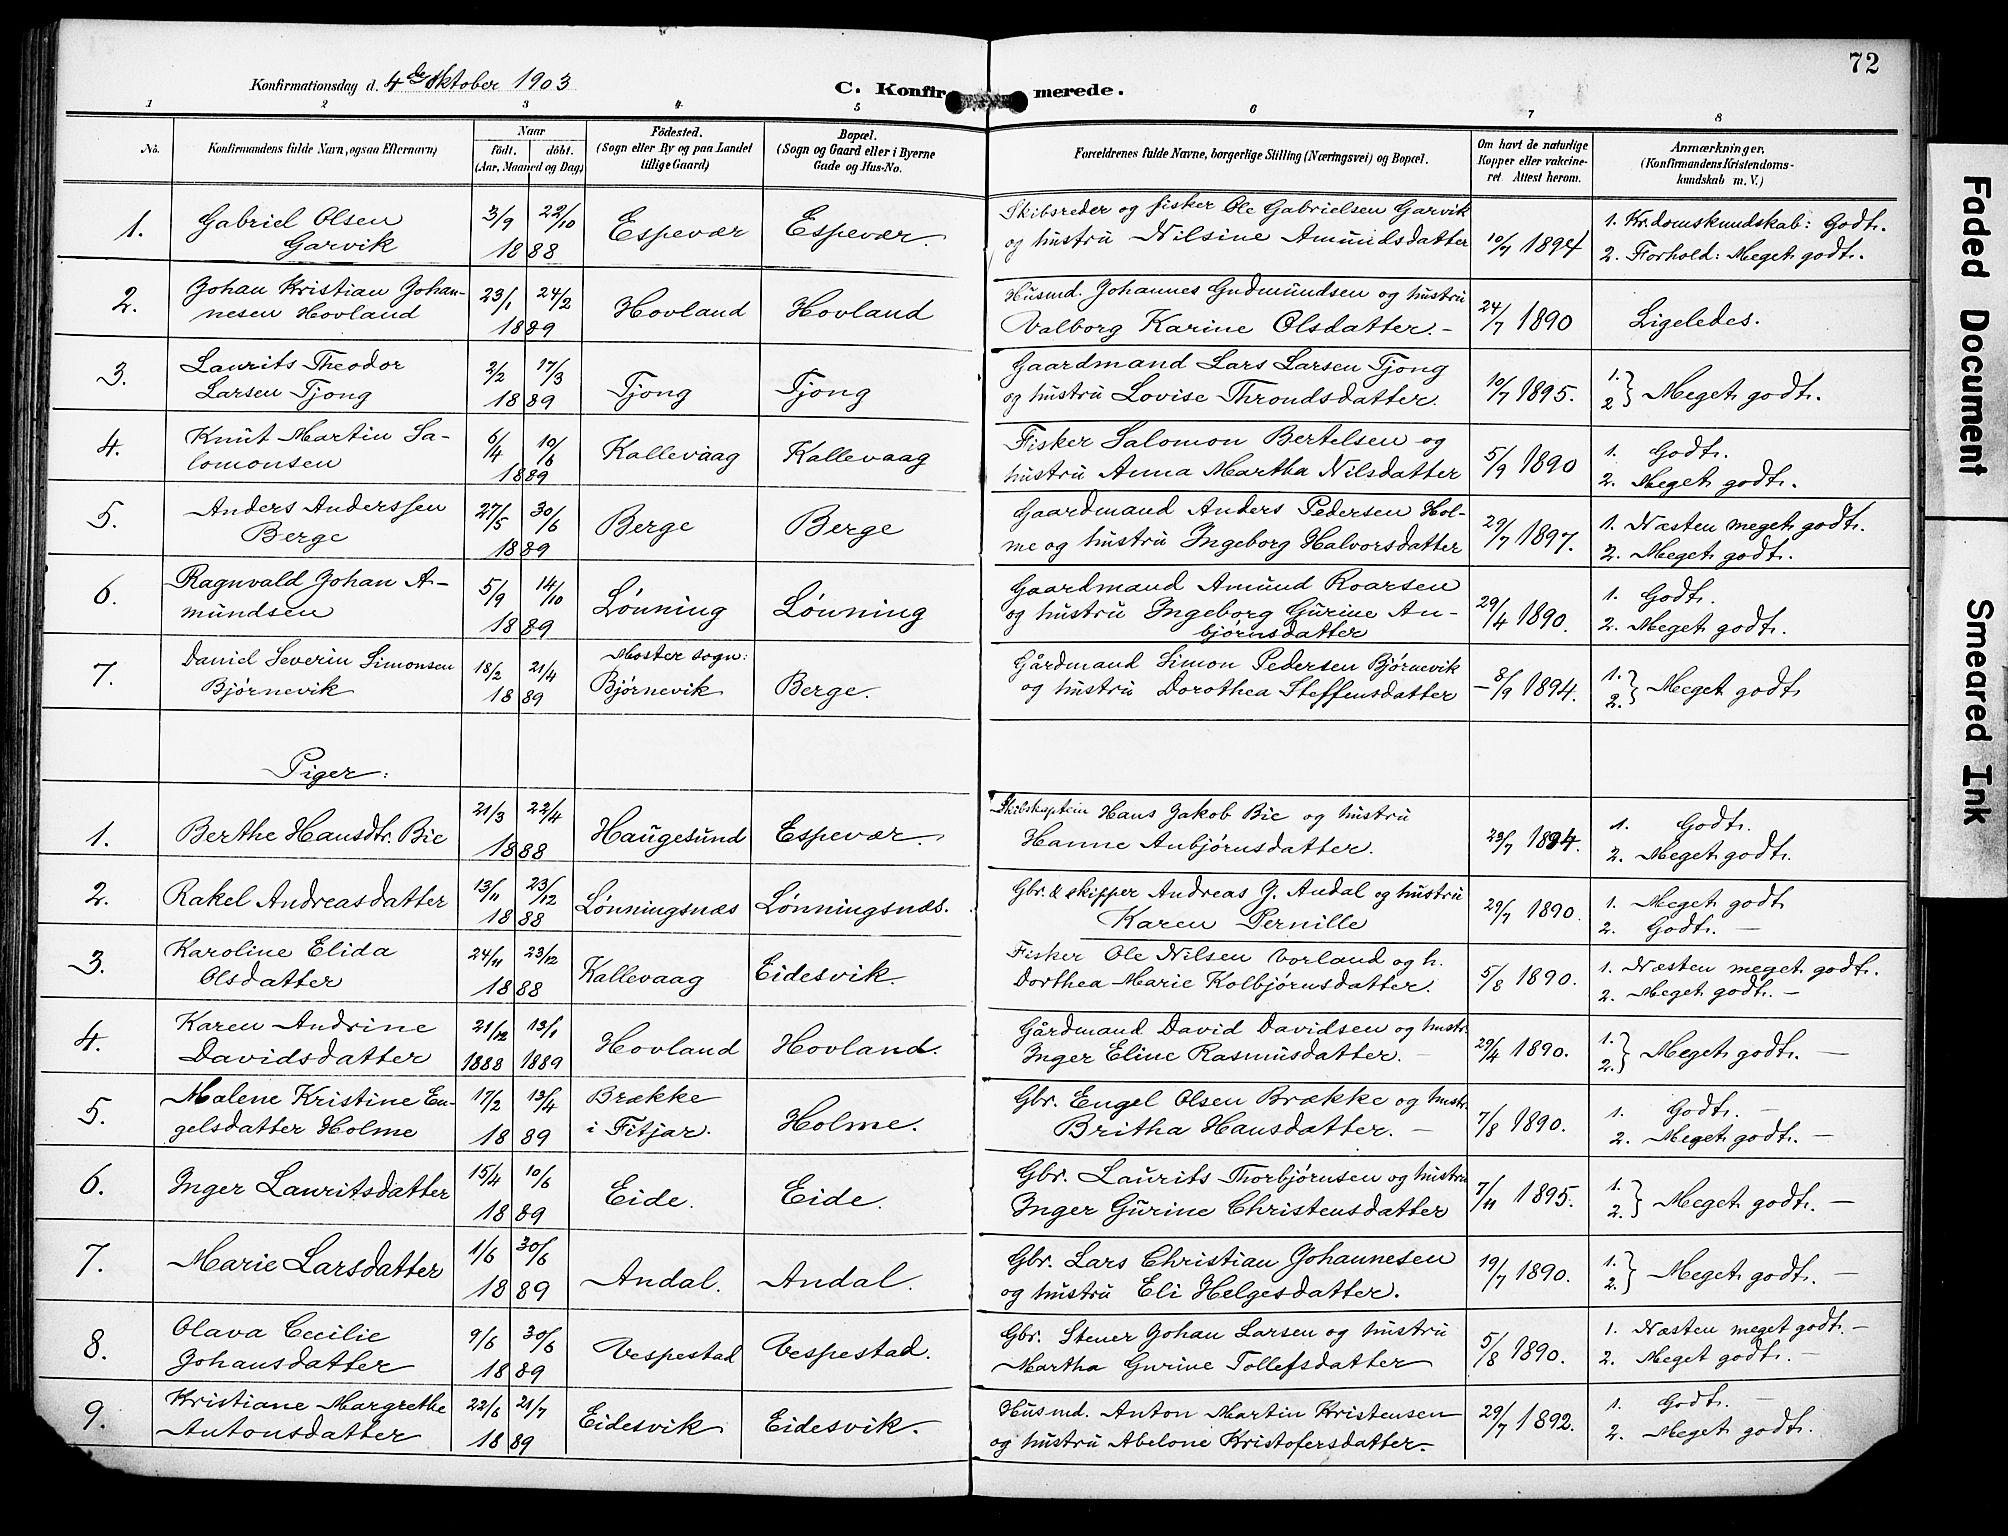 72
Konfirmationsdag d. 4de Oktober 1903
C. Konfirmerede.
1 2 3 4 5 6 7 8
No. Konfirmandens fulde Navn, ogsaa Efternavn) Naar født. døbt. (Aar, Maaned og Dag) Födested. (Sogn eller By og paa Landet tillige Gaard) Bopæl. (Sogn og Gaard eller i Byerne Gade og Hus-No. Forældrenes fulde Navne, borgerlige Stilling (Næringsvei) og Bopæl. Om havt de naturlige Kopper eller vakcineret Attest herom. Anmærkninger. (Konfirmandens Kristendomskundskab m. V.)
1. Gabriel Olsen Garvik 3/9 22/10 1888 Espevær Espevær. Skibsreder og fisker Ole Gabrielsen Garvik og hustru Nilsine Amundsdatter 10/7 1894 1. Kr.domskundskab: Godt. 2. Forhold: Meget godt.
2. Johan Kristian Johannesen Hovland 23/1 24/2 1889 Hovland Hovland Husmd. Johannes Gudmundsen og hustru Valborg Karine Olsdatter.- 24/7 1890 Ligeledes.
3. Laurits Theodor Larsen Tjong 2/2 17/3 1889 Tjong Tjong Gaardmand Lars Larsen Tjong og hustru Lovise Throndsdatter 10/7 1895. 1. 2 } Meget godt.
4. Knut Martin Salomonsen 6/4 10/6 1889 Kallevaag Kallevaag Fisker Salomon Bertelsen og hustru Anna Martha Nilsdatter 5/9 1890 1. Godt. 2. Meget godt.
5. Anders Anderssen Berge 27/5 30/6 1889 Berge Berge Gaardmand Anders Pedersen Holme og hustru Ingeborg Halvorsdatter 29/7 1897. 1. Næsten meget godt. 2. Meget godt.
6. Ragnvald Johan Amundsen 5/9 14/10 1889 Lønning Lønning Gaardmand Amund Roarsen og hustru Ingeborg Gurine Anbjørnsdatter 29/4 1890. 1. Godt. 2. Meget godt.
7. Daniel Severin Simonsen Bjørnevik 18/2 21/4 1889 Moster sogn: Bjørnevik Berge. Gårdmand Simon Pedersen Bjørnevik og hustru Dorothea Steffensdatter - 8/9 1894. 1. 2. } Meget godt
Piger:
1. Berthe Hansdtr. Bie 21/3 22/4 1888 Haugesund Espevær. Skibskaptein Hans Jakob Bie og hustru Hanne Anbjørnsdatter. 23/7 1894. 1. Godt. 2. Meget godt.
2. Rakel Andreasdatter 13/11 23/12 1888 Lønningsnæs Lønningsnæs. Gbr. & skipper Andreas J. Andal og hustru Karen Pernille 29/7 1890. 1. Meget godt 2. Godt. -
3. Karoline Elida Olsdatter 24/11 23/12 1888 Kallevaag Eidesvik. Fisker Ole Nilsen Vorland og h. Dorthea Marie Kolbjørnsdatter. 5/8 1890. 1. Næsten meget godt. 2. Meget godt. -
4. Karen Andrine Davidsdatter 21/12 1888 13/1 1889 Hovland Hovland. Gårdmand David Davidsen og hustr. Inger Eline Rasmusdatter. - 29/4 1890. 1. 2. } Meget godt. -
5. Malene Kristine Engelsdatter Holme 17/2 13/4 1889 Brække i Fitjar. Holme. Gbr. Engel Olsen Brække og hustr. Britha Hansdatter. - 7/8 1890. 1. Godt. - 2. Meget godt. -
6. Inger Lauritsdatter 15/4 10/6 1889 Eide. Eide. Gbr. Laurits Thorbjørnsen og hustru Inger Gurine Christensdatter 7/11 1895. 1. 2. } Meget godt. -
7. Marie Larsdatter 1/6 30/6 1889 Andal. Andal. Gbr. Lars Christian Johannesen og hustru Eli Helgesdatter. 19/7 1890. 1. 2. } Meget godt. -
8. Olava Cecilie Johansdatter 9/6 30/6 1889 Vespestad Vespestad. Gbr. Stener Johan Larsen og hustru Martha Gurine Tollefsdatter 5/8 1890. 1. Næsten meget godt. - 2. Meget godt. -
9. Kristiane Margrethe Antonsdatter 22/6 21/7 1889 Eidesvik Eidesvik. Husmd. Anton Martin Kristensen og hustru Abelone Kristofersdatter.- 29/7 1892. 1. Godt. - 2. Meget godt.
Faded Document
Smeared Ink